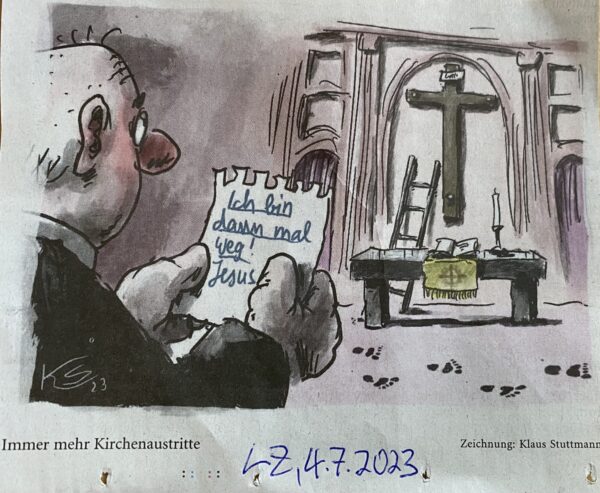 Ich bin
dann mal
weg!
Jesus
KS 23
Immer mehr Kirchenaustritte
Zeichnung: Klaus Stuttmann
LZ, 4.7.2023